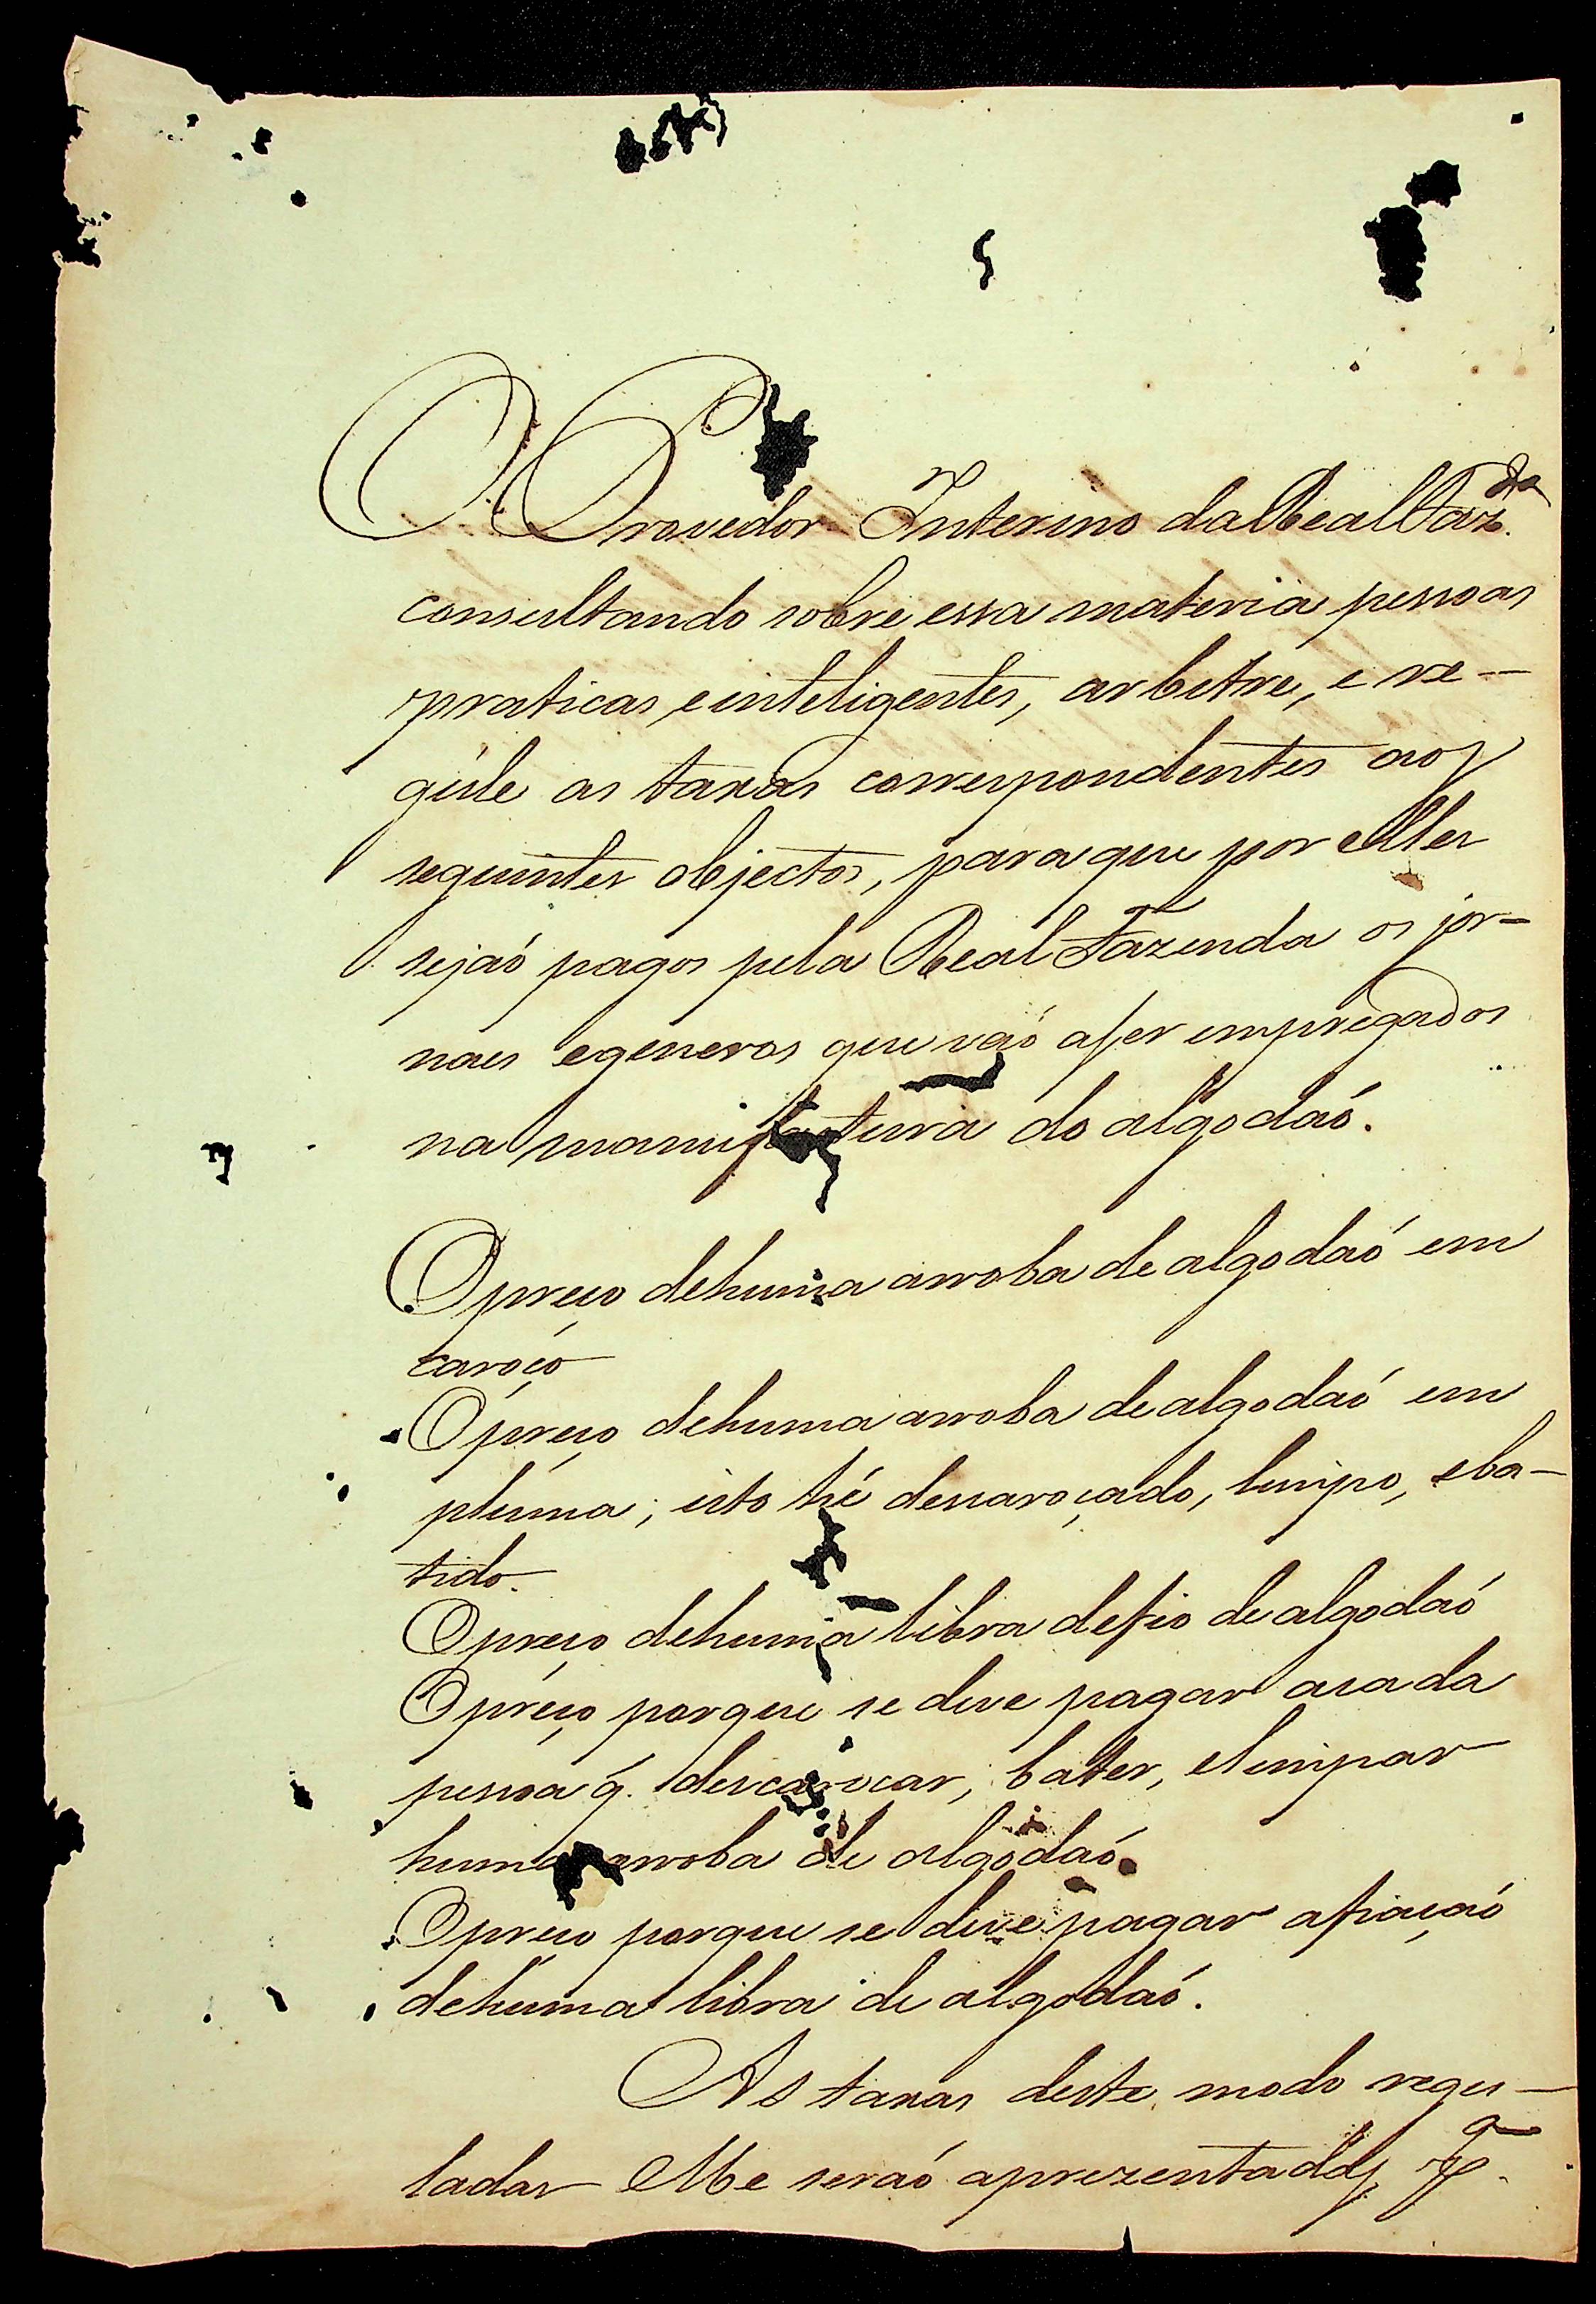 O Provedor Interino da Real Faz.da
consultando sobre essa materia pessoas
praticas, e inteligentes, arbitre, e re-
gule as taxas correspondentes aos
seguintes objectos, para que por elles
sejaó pagos pela Real Fazenda os jor-
naes e generos que vaó a ser empregados
na manufactura do algodaó.
O preço de huma arroba de algodaó em
caroço
O preço de huma arroba de algodaó em
pluma; isto hé descaroçado, limpo, e ba-
tido.
O preço de huma libra de fio de algodaó
O preço porque se deve pagar a cada
pessoa q. descarocar, bater, e limpar
huma arroba de algodaó.
O preço porque se deve pagar a fiaçaó
de huma libra de algodaó.
As taxas deste modo regu-
ladas Me seraó aprezentadas p.a